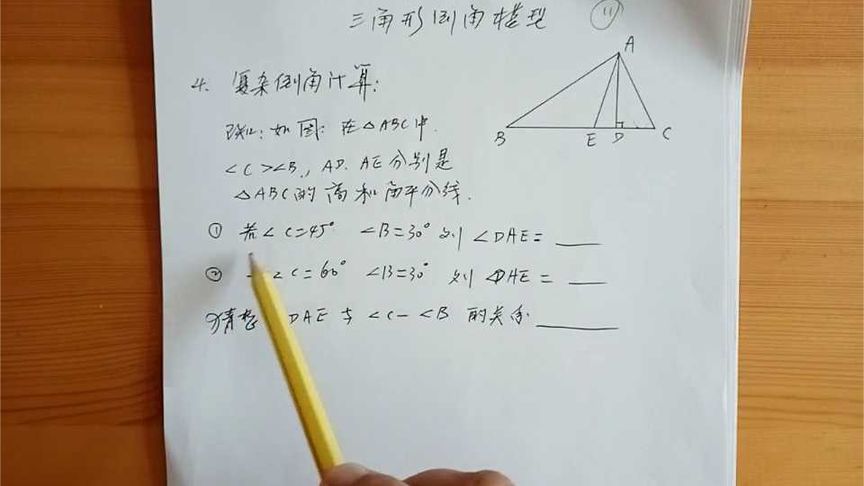 三角形倒角模型 11
4. 复杂倒角计算:
A
B E D C
已知:如图:在△ABC中.
∠C>∠B., AD. AE分别是
△ABC的高和角平分线.
① 若∠C=45° ∠B=30° 则 ∠DAE=
② ∠C=60° ∠B=30° 则 ∠DAE =
猜想 DAE 与 ∠C-∠B 的关系